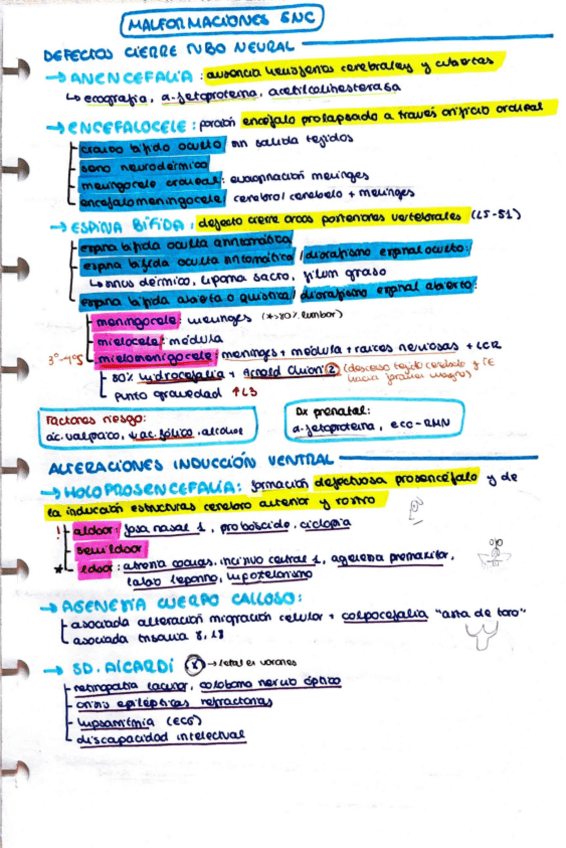 MALFORMACIONES SNC
DEFECTOS CIERRE TUBO NEURAL
→ ANENCEFALIA: ausencia hemisferios cerebrales y cubiertas
↳ ecografía, α-fetoproteína, acetilcolinesterasa
→ ENCEFALOCELE: porción encéfalo prolapsado a través orificio craneal
cráneo bífido oculto sin salida tejidos
seno neurodérmico
meningocele craneal: evaginación meninges
encefalomeningocele: cerebro/cerebelo + meninges
→ ESPINA BÍFIDA: defecto cierre arcos posteriores vertebrales (L5-S1)
espina bífida oculta asintomática
espina bífida oculta sintomática / disrafismo espinal oculto:
↳ sinus dérmico, lipoma sacro, filum graso
espina bífida abierta o quística / disrafismo espinal abierto:
meningocele: meninges (*>80% lumbar)
mielocele: médula
3º-4ªS mielomeningocele: meninges + médula + raíces nerviosas + LCR
80% hidrocefalia + Arnold Chiari 2 (descenso tejido cerebelo y TE hacia foramen magno)
punto gravedad ↑L3
Factores riesgo:
ác. valproico, ↓ac. fólico, alcohol
Dx prenatal:
α-fetoproteína, eco-RMN
ALTERACIONES INDUCCIÓN VENTRAL
→ HOLOPROSENCEFALIA: formación defectuosa prosencéfalo y de
la inducción estructuras cerebro anterior y rostro
! alobar: fosa nasal 1, probóscide, ciclopia
semilobar
* lobar: atresia coanas, incisivo central 1, agenesia premaxilar,
labio leporino, hipotelorismo
→ AGENESIA CUERPO CALLOSO:
asociada alteración migración celular + colpocefalia "asta de toro"
asociada trisomía 8, 18
→ SD. AICARDI (X) → letal en varones
retinopatía lacunar, coloboma nervio óptico
crisis epilépticas refractarias
hipsarritmia (EEG)
discapacidad intelectual